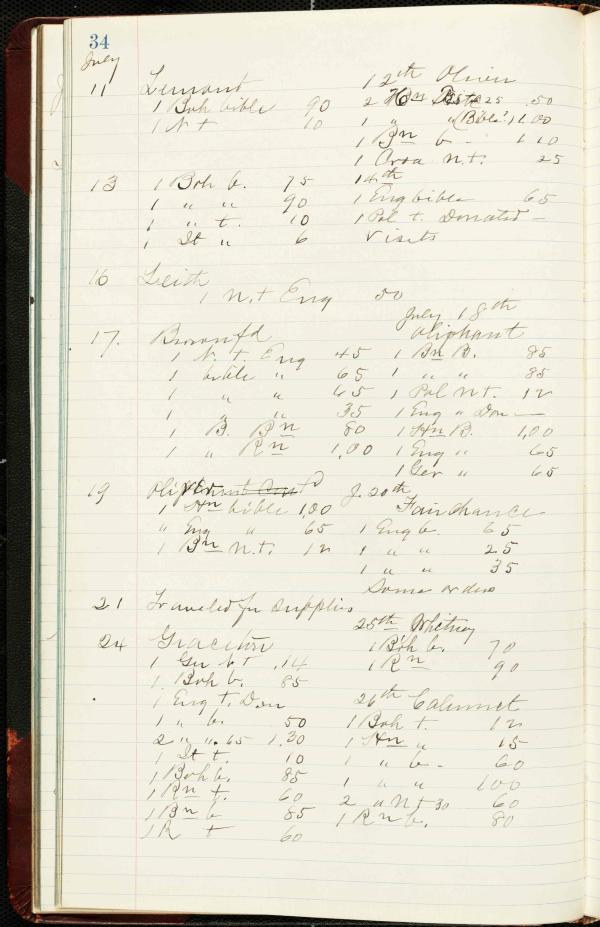 34
July
11 Lemont
1 Boh bible 90
1 N t 10
12th Oliver
2 Hn Bets 25 .50
1 " " (Bible) 1.00
1 Bn b - 1 10
1 Croa N.t. 25
13 1 Boh b. 75
1 " " 90
1 " t. 10
1 It " 6
14th
1 Eng bible 65
1 Pol t. Donated -
Visits
16 Leith
1 N.t Eng 50
17. Brownfd
1 N.t. Eng 45
1 bible " 65
1 " " 65
1 " " 35
1 B. Bn 80
1 " Rn 1,00
July 18th
Oliphant
1 Bn B. 85
1 " " 85
1 Pol N.t. 12
1 Eng " Don -
1 Hn B. 1,00
1 Eng " 65
1 Ger " 65
19
1 Hn bible 1,00
" Eng " 65
1 Bn N.t. 12
J. 20th
Fairchance
1 Eng b. 65
1 " " 25
1 " " 35
Some orders
21 Traveled for supplies
24 Graceton
1 Gr N t .14
1 Boh b. 85
1 Eng t. Don
1 " b. 50
2 " " .65 1.30
1 It t. 10
1 Boh b. 85
1 Rn t. 60
1 Bn b 85
1 R t 60
25th Whitney
1 Boh b. 70
1 Rn 90
26th Calumet
1 Boh t. 12
1 Hn " 15
1 " b - 60
1 " " 100
2 " N t 30 60
1 Rn b. 80